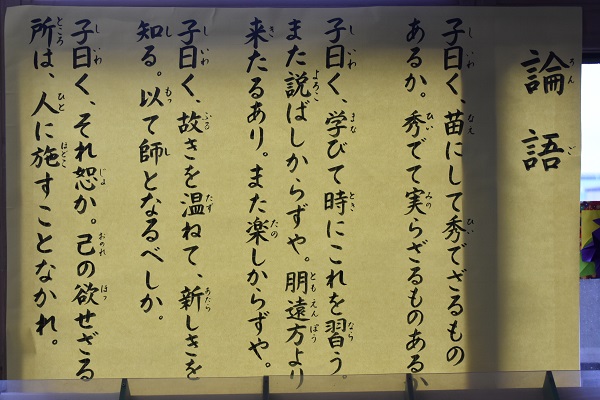 論語
子曰く、苗にして秀でざるもの
あるか。秀でて実らざるものあるか
子曰く、学びて時にこれを習う。
また説ばしからずや。朋遠方より
来たるあり。また楽しからずや。
子曰く、故きを温ねて、新しきを
知る。以て師となるべしか。
子曰く、それ恕か。己の欲せざる
所は、人に施すことなかれ。